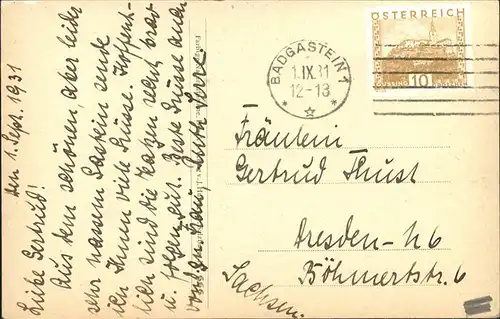 den 1. Sept. 1931
Liebe Gertrud!
Aus dem schönen, aber leider
sehr nassem Gastein sende
ich Ihnen viele Grüsse. Hoffent-
lich sind die Katzen recht brav
u. folgen gut. Beste Grüsse auch
von
ÖSTERREICH
GÜSSING
10
BADGASTEIN 1
1.IX.31
12-13
Fräulein
Gertrud Thust
Dresden-N6
Böhmertstr. 6
Sachsen.